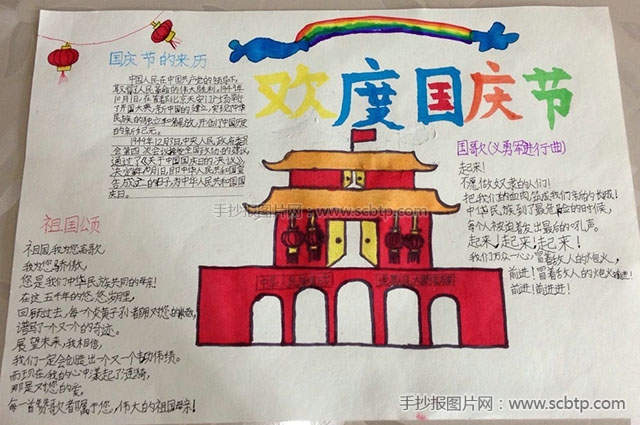 欢度国庆节
国庆节的来历
中国人民在中国共产党的领导下,
取得了人民革命的伟大胜利。1949年
10月1日,在首都北京天安门广场举行
了开国大典,新中国的建立,实现了中华
民族的独立和解放,开创了中国历史
的新纪元。
1949年12月3日,中央人民政府委员
会第四次会议接受全国政协的建议,
通过了《关于中华人民共和国国庆日的决议》,
决定每年10月1日,即中华人民共和国宣告
成立的日子,为中华人民共和国国
庆日。
祖国颂
祖国,我为您高歌,
我为您骄傲,
您是我们中华民族共同的母亲!
在这五千年的悠悠岁月里,
回顾过去,每个炎黄子孙者
谱写一个又一个的奇迹。
展望未来,我相信,
我们一定会创造出一个又一个
而现在,我的心中漾起了涟漪,
那是对您的爱,
每一首赞歌者属于您,伟大的祖国母亲!
国歌(义勇军进行曲)
起来!
不愿做奴隶的人们!
把我们的血肉筑成我们新的长城!
中华民族到了最危险的时候,
每个人被迫着发出最后的吼声。
起来!起来!起来!
我们万众一心,冒着敌人的炮火,
前进!冒着敌人的炮火前进!
前进!前进进!
手抄报图片网:www.scbtp.com
手抄报图片网:www.scbtp.com